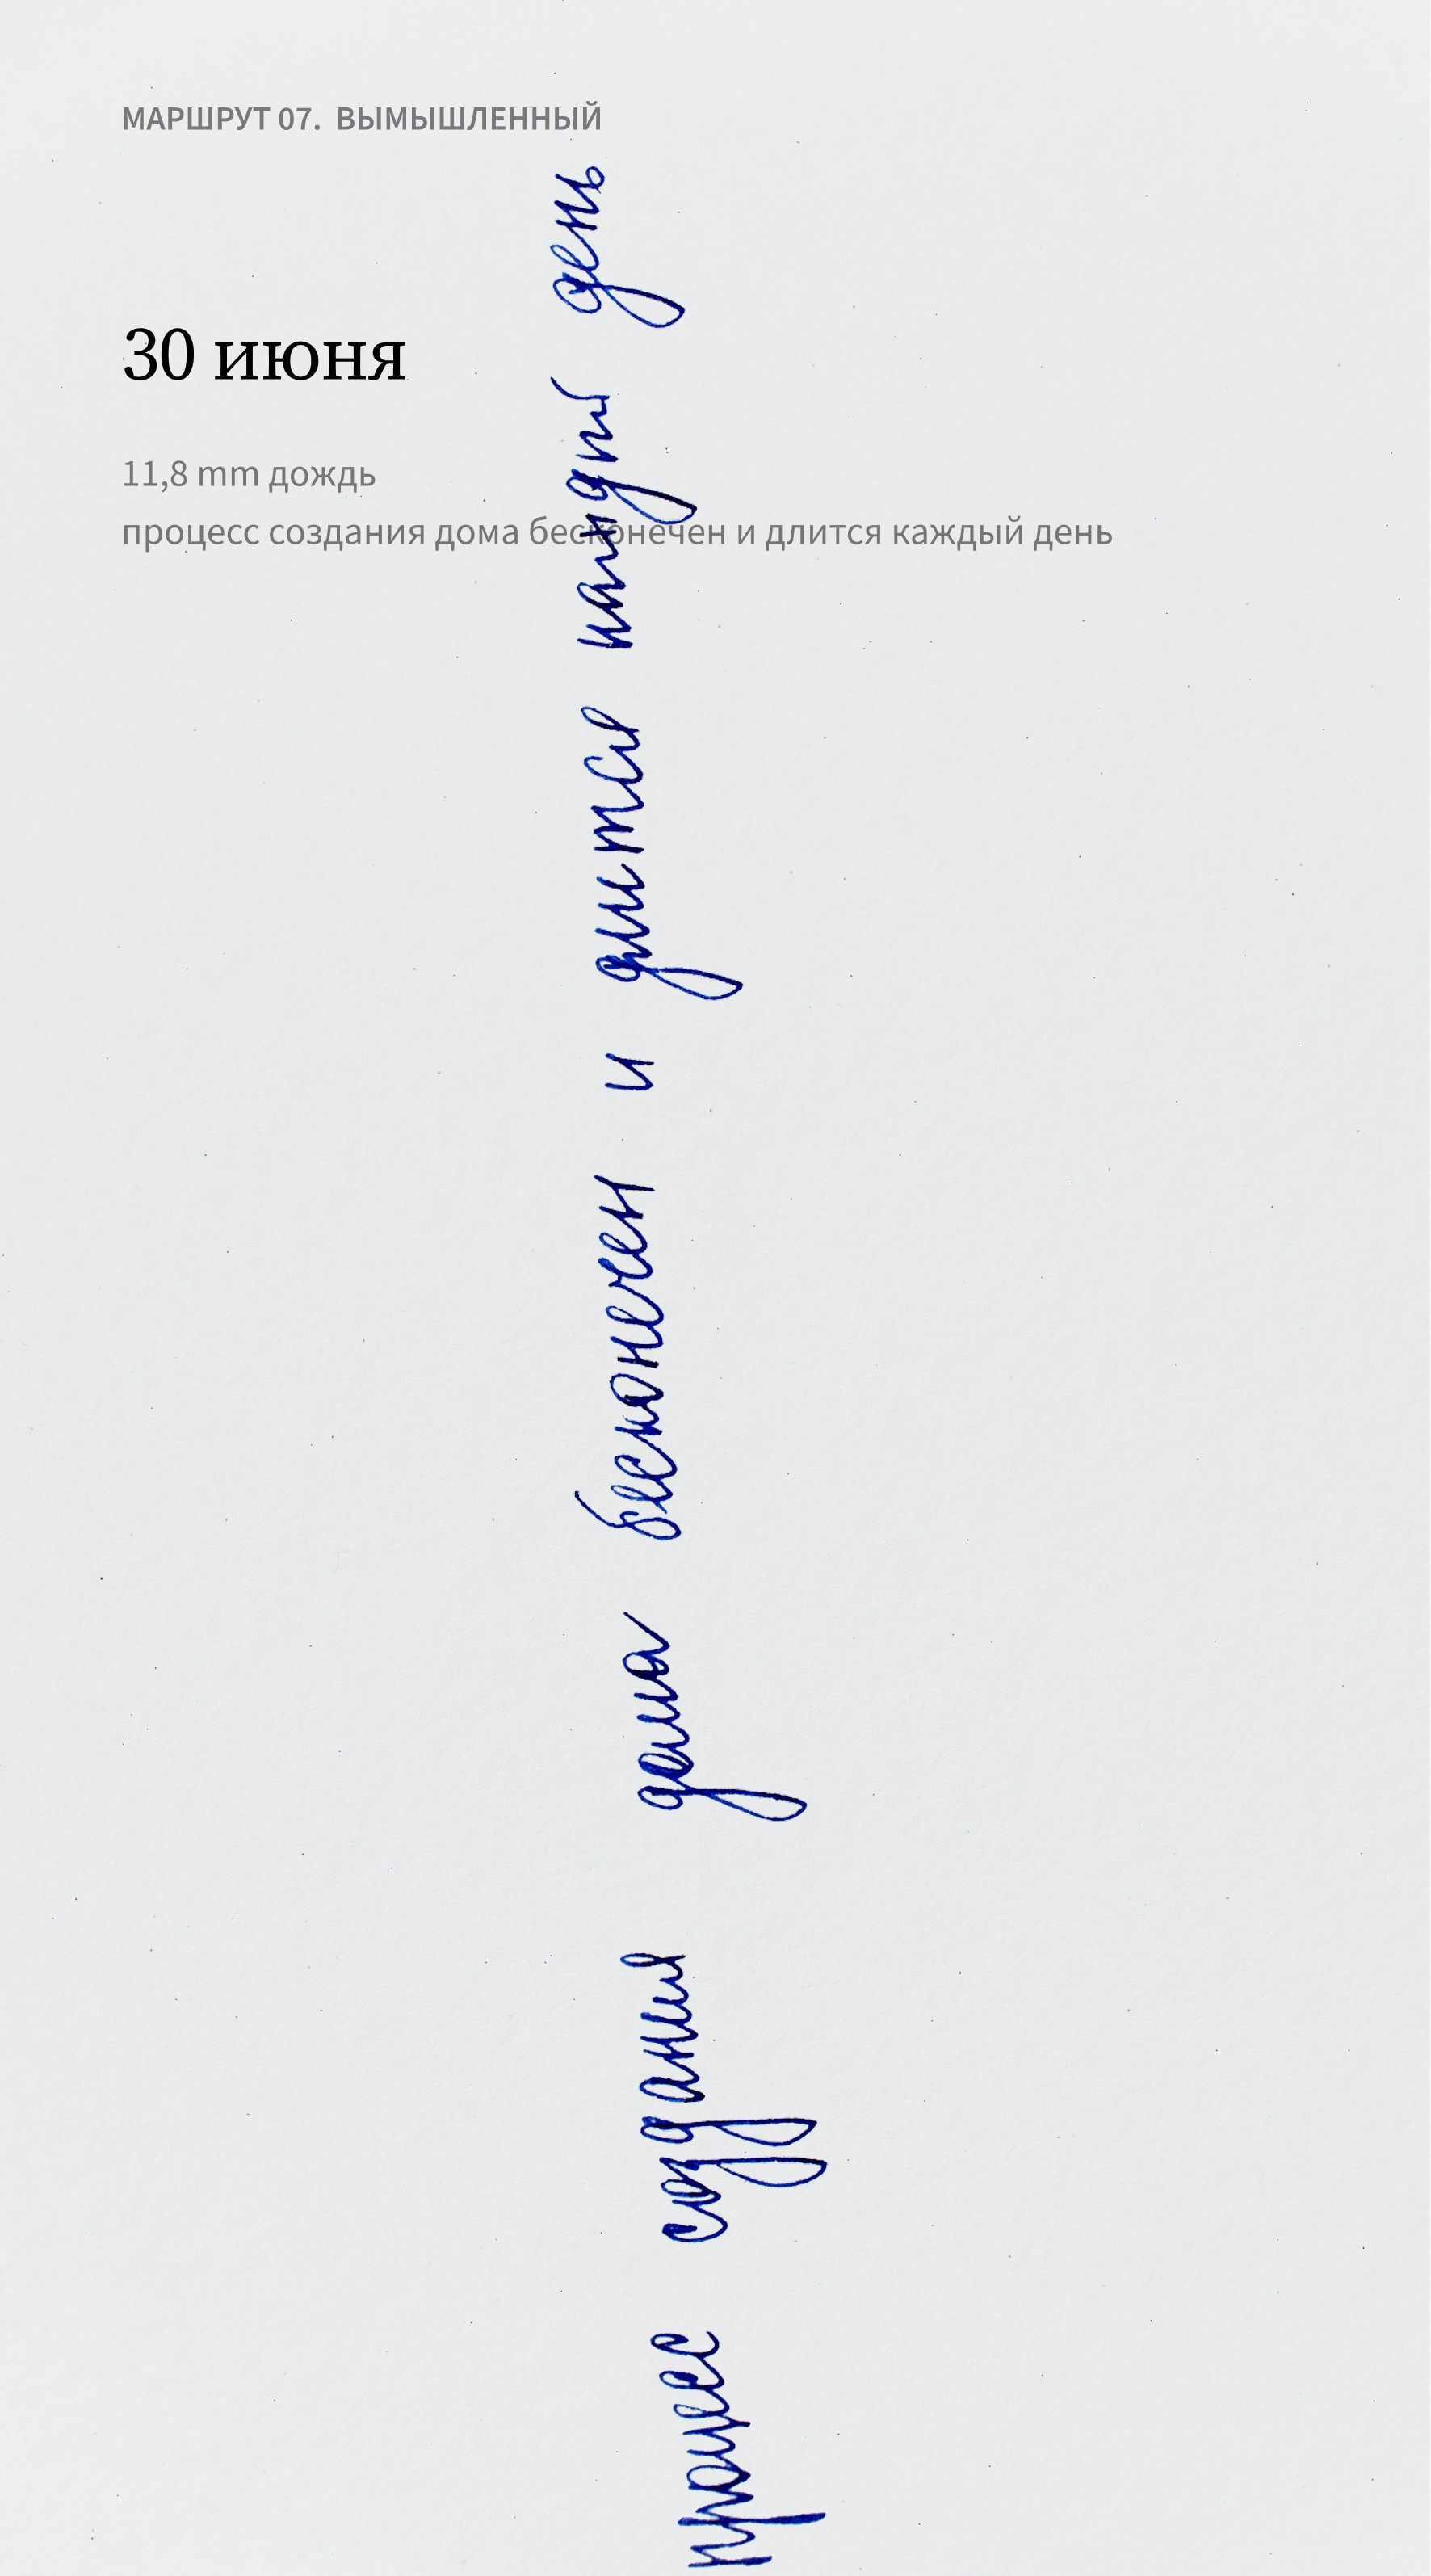 МАРШРУТ 07. ВЫМЫШЛЕННЫЙ
30 июня
11,8 mm дождь
процесс создания дома бесконечен и длится каждый день
процесс создания дома бесконечен и длится каждый день